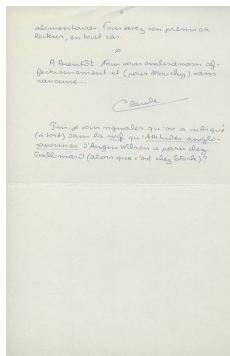 alimentaires. Vous serez son premier
lecteur, en tout cas.
A bientôt. Nous vous embrassons af-
fectueusement et (pour Mouchy) sans
rancune...
Claude
Puis-je vous signaler qu'on a indiqué
(à tort) dans la nrf qu'Attitudes anglo-
saxonnes d'Angus Wilson a paru chez
Gallimard (alors que c'est chez Stock)?